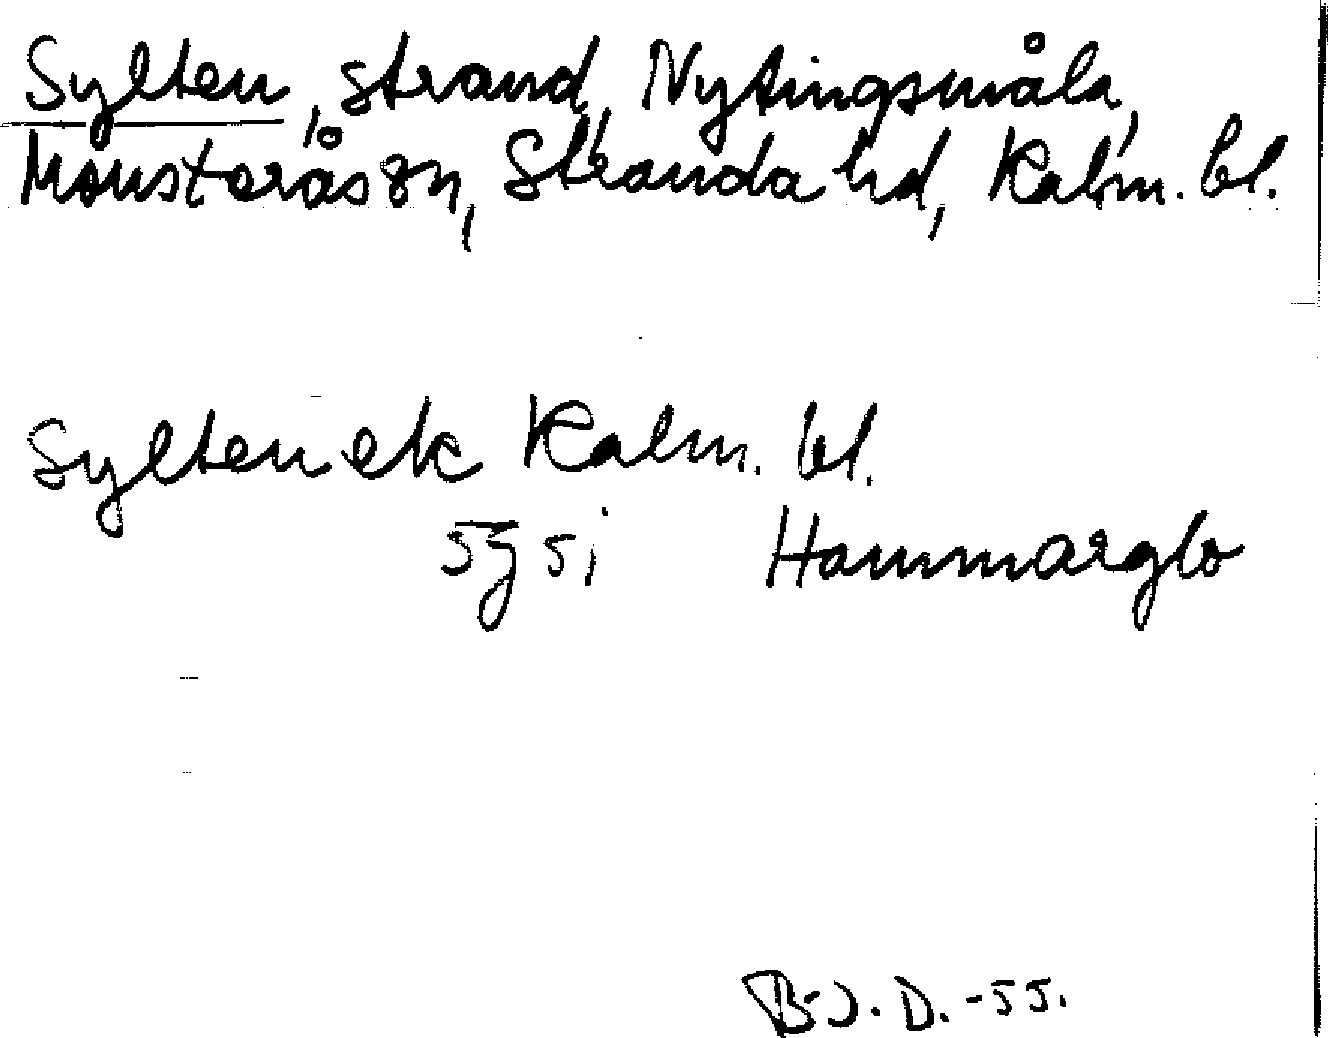 Sylten, strand, Nytingsmåla,
Mönsterås sn, Stranda hd, Kalm. bl.
Sylten ek Kalm. bl.
5g 5i Hammarglo
B-J. D. -55.